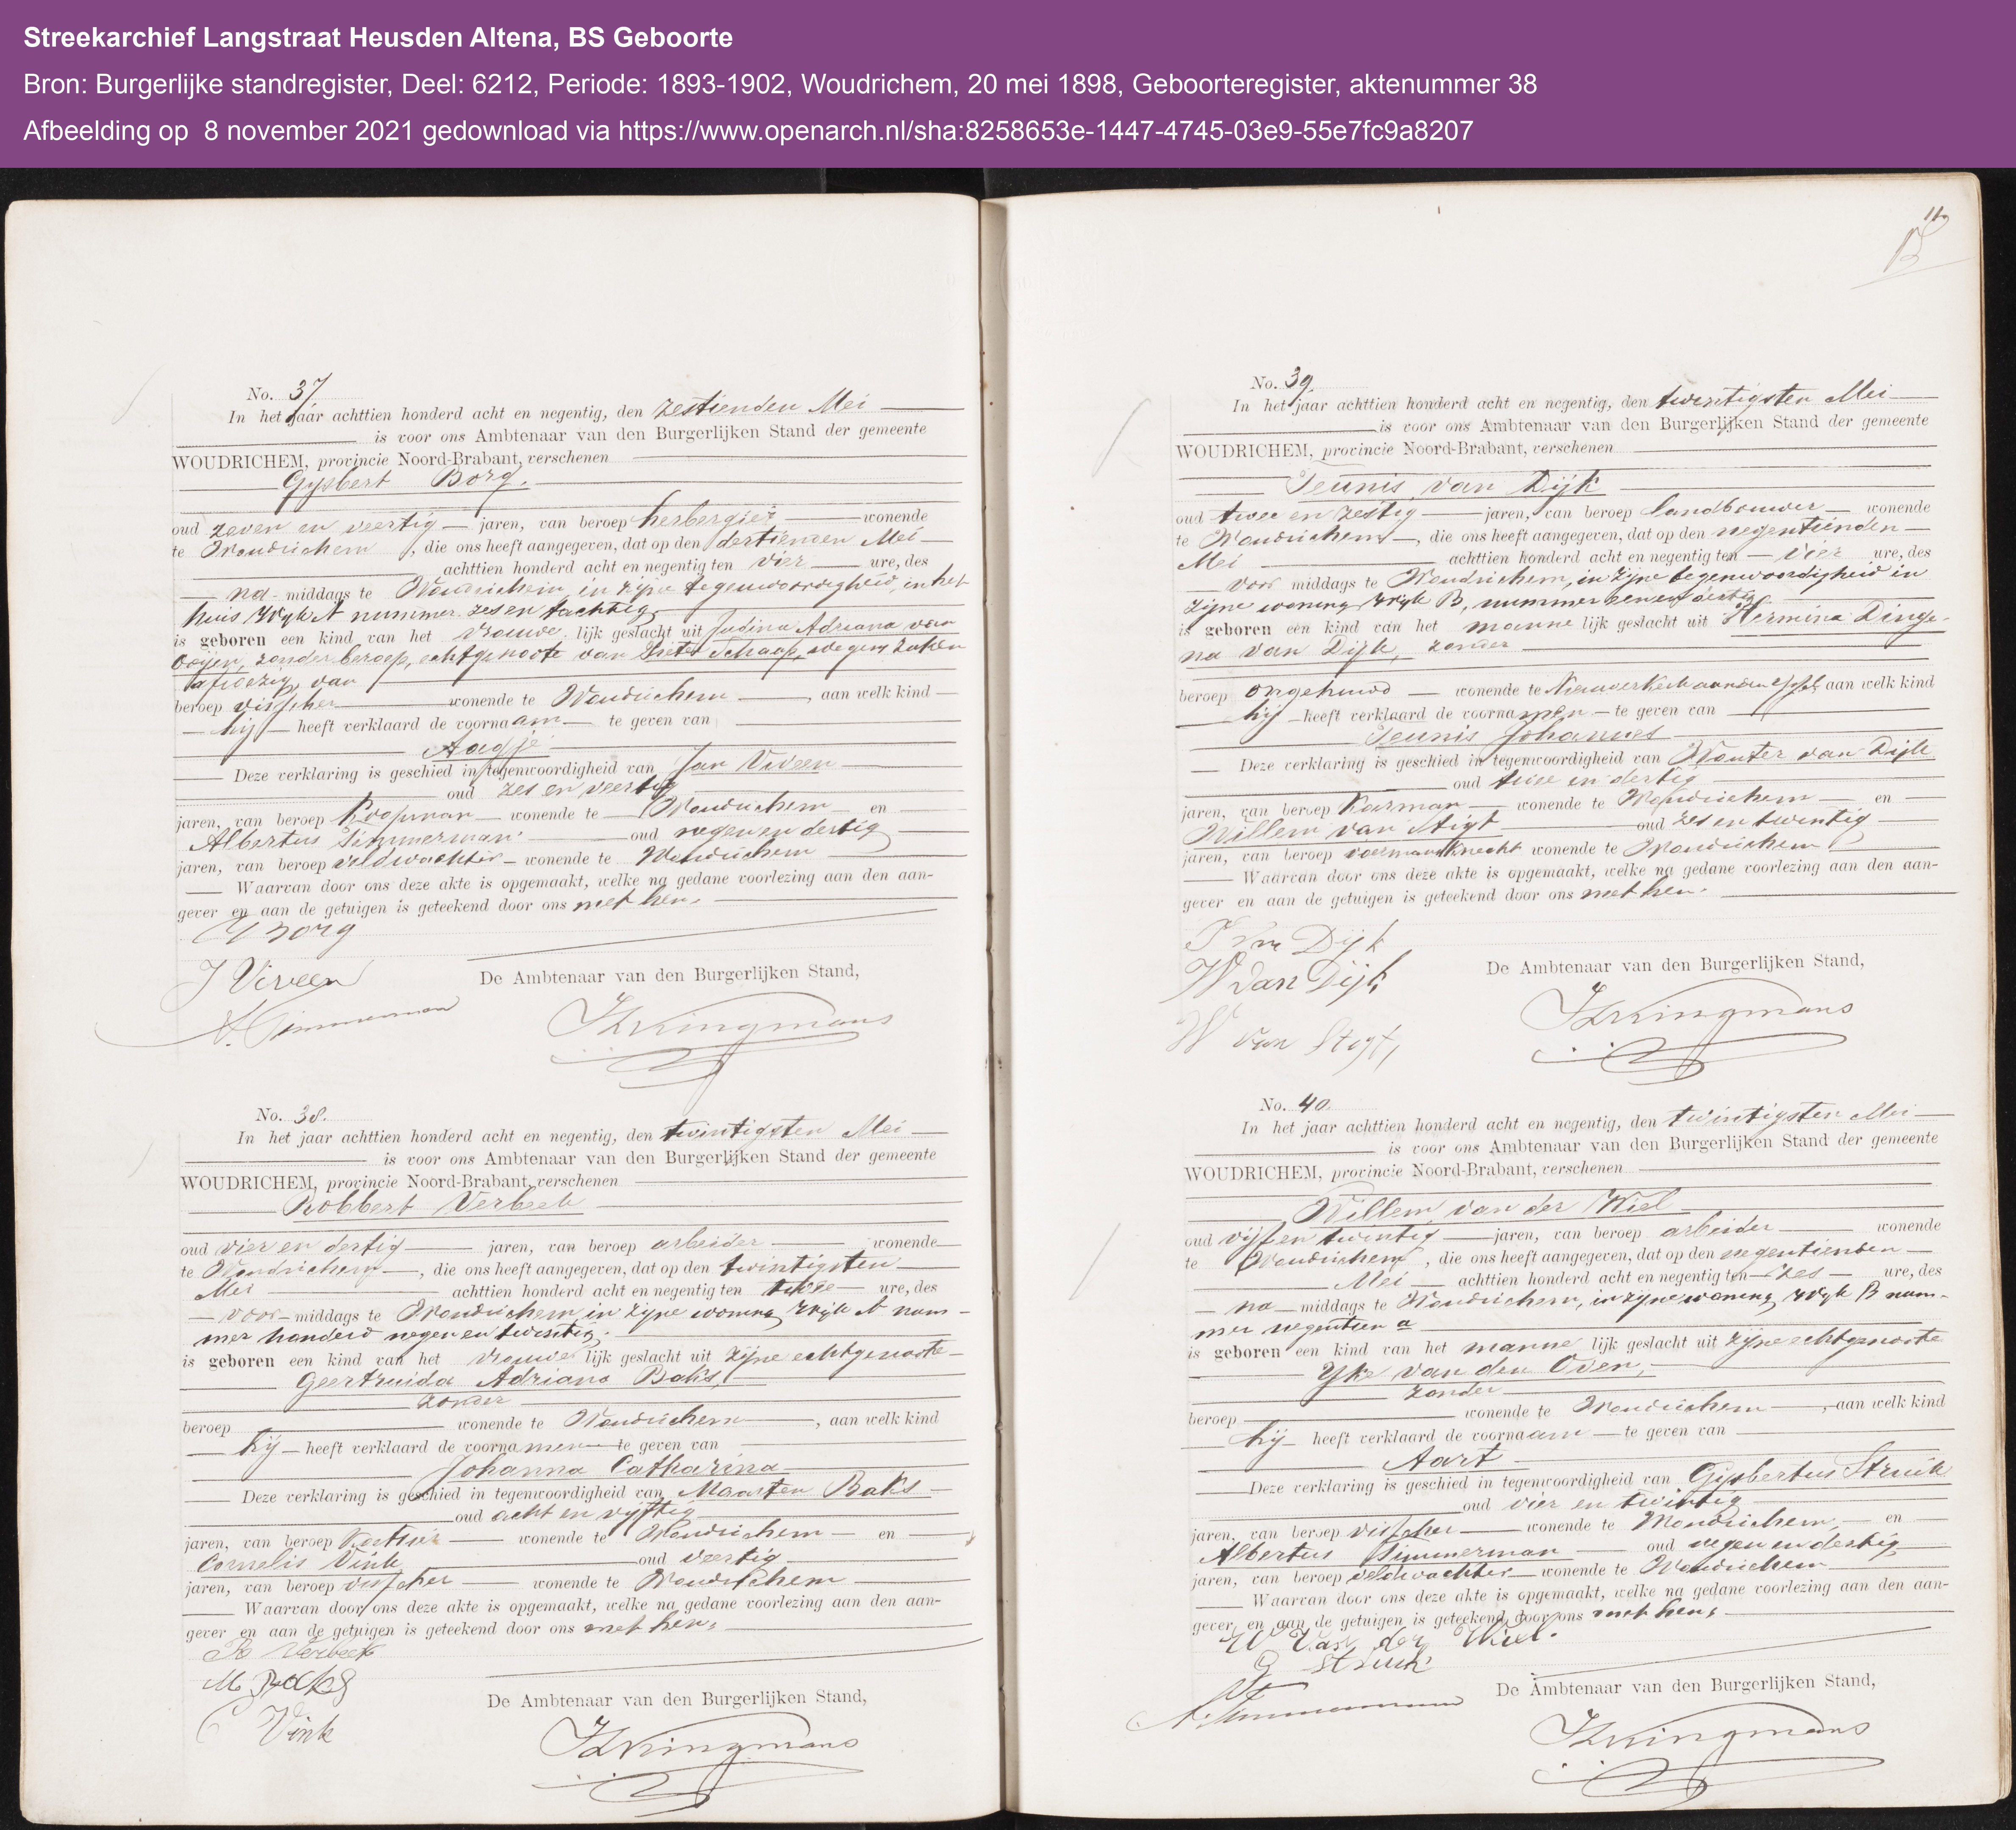 Streekarchief Langstraat Heusden Altena, BS Geboorte
Bron: Burgerlijke standregister, Deel: 6212, Periode: 1893-1902, Woudrichem, 20 mei 1898, Geboorteregister, aktenummer 38
Afbeelding op 8 november 2021 gedownload via https://www.openarch.nl/sha:8258653e-1447-4745-03e9-55e7fc9a8207
No. 37
In het jaar achttien honderd acht en negentig, den zestienden Mei
is voor ons Ambtenaar van den Burgerlijken Stand der gemeente
WOUDRICHEM, provincie Noord-Brabant, verschenen
Gijsbert Borg,
oud zeven en veertig jaren, van beroep herbergier wonende
te Woudrichem, die ons heeft aangegeven, dat op den dertienden Mei
achttien honderd acht en negentig ten vier ure, des
na middags te Woudrichem, in zijne tegenwoordigheid, in het
huis Wijk A nummer zes en tachtig,
is geboren een kind van het vrouwe lijk geslacht uit Judina Adriana van
Ooijen, zonder beroep, echtgenoote van Pieter Schaap, wegens zaken
afwezig, van
beroep visscher wonende te Woudrichem, aan welk kind
hij heeft verklaard de voornaam te geven van
Aagje
Deze verklaring is geschied in tegenwoordigheid van Jan Viveen
oud zes en veertig
jaren, van beroep Koopman wonende te Woudrichem en
Albertus Timmerman oud negen en dertig
jaren, van beroep veldwachter wonende te Woudrichem
Waarvan door ons deze akte is opgemaakt, welke na gedane voorlezing aan den aan-
gever en aan de getuigen is geteekend door ons met hen.
G Borg
J Viveen
A. Timmerman
De Ambtenaar van den Burgerlijken Stand,
Kringmans
No. 38.
In het jaar achttien honderd acht en negentig, den twintigsten Mei
is voor ons Ambtenaar van den Burgerlijken Stand der gemeente
WOUDRICHEM, provincie Noord-Brabant, verschenen
Robbert Verbeek
oud vier en dertig jaren, van beroep arbeider wonende
te Woudrichem, die ons heeft aangegeven, dat op den twintigsten
Mei achttien honderd acht en negentig ten twee ure, des
voor middags te Woudrichem, in zijne woning, Wijk A num-
mer honderd negen en twintig.
is geboren een kind van het vrouwe lijk geslacht uit zijne echtgenoote
Geertruida Adriana Baks,
zonder
beroep wonende te Woudrichem, aan welk kind
hij heeft verklaard de voornamen te geven van
Johanna Catharina
Deze verklaring is geschied in tegenwoordigheid van Maarten Baks
oud acht en vijftig
jaren, van beroep wonende te Woudrichem en
Cornelis Vink oud veertig
jaren, van beroep visscher wonende te Woudrichem
Waarvan door ons deze akte is opgemaakt, welke na gedane voorlezing aan den aan-
gever en aan de getuigen is geteekend door ons met hen,
R Verbeek
M Baks
C Vink
De Ambtenaar van den Burgerlijken Stand,
Kringmans
No. 39.
In het jaar achttien honderd acht en negentig, den twintigsten Mei
is voor ons Ambtenaar van den Burgerlijken Stand der gemeente
WOUDRICHEM, provincie Noord-Brabant, verschenen
Teunis van Dijk
oud twee en zestig jaren, van beroep landbouwer wonende
te Woudrichem, die ons heeft aangegeven, dat op den negentienden
Mei achttien honderd acht en negentig ten vier ure, des
voor middags te Woudrichem, in zijne tegenwoordigheid in
zijne woning, Wijk B, nummer een en dertig
is geboren een kind van het manne lijk geslacht uit Hermina Dinge-
na van Dijk, zonder
beroep ongehuwd wonende te Nieuwerkerk aan den IJssel, aan welk kind
hij heeft verklaard de voornamen te geven van
Teunis Johannes
Deze verklaring is geschied in tegenwoordigheid van Wouter van Dijk
oud twee en dertig
jaren, van beroep Karman wonende te Woudrichem en
Willem van Stigt oud zes en twintig
jaren, van beroep voermansknecht wonende te Woudrichem
Waarvan door ons deze akte is opgemaakt, welke na gedane voorlezing aan den aan-
gever en aan de getuigen is geteekend door ons met hen.
T van Dijk
W van Dijk
W van Stigt
De Ambtenaar van den Burgerlijken Stand,
Kringmans
No. 40
In het jaar achttien honderd acht en negentig, den twintigsten Mei
is voor ons Ambtenaar van den Burgerlijken Stand der gemeente
WOUDRICHEM, provincie Noord-Brabant, verschenen
Willem van der Wiel
oud vijf en twintig jaren, van beroep arbeider wonende
te Woudrichem, die ons heeft aangegeven, dat op den negentienden
Mei achttien honderd acht en negentig ten zes ure, des
na middags te Woudrichem, in zijne woning, Wijk B num-
mer negentien a
is geboren een kind van het manne lijk geslacht uit zijne echtgenoote
Yke van den Oven,
zonder
beroep wonende te Woudrichem, aan welk kind
hij heeft verklaard de voornaam te geven van
Aart
Deze verklaring is geschied in tegenwoordigheid van Gijsbertus Struik
oud vier en twintig
jaren, van beroep visscher wonende te Woudrichem, en
Albertus Timmerman oud negen en dertig
jaren, van beroep veldwachter wonende te Woudrichem
Waarvan door ons deze akte is opgemaakt, welke na gedane voorlezing aan den aan-
gever en aan de getuigen is geteekend door ons met hen,
W Van der Wiel.
G Struik
A. Timmerman
De Ambtenaar van den Burgerlijken Stand,
Kringmans